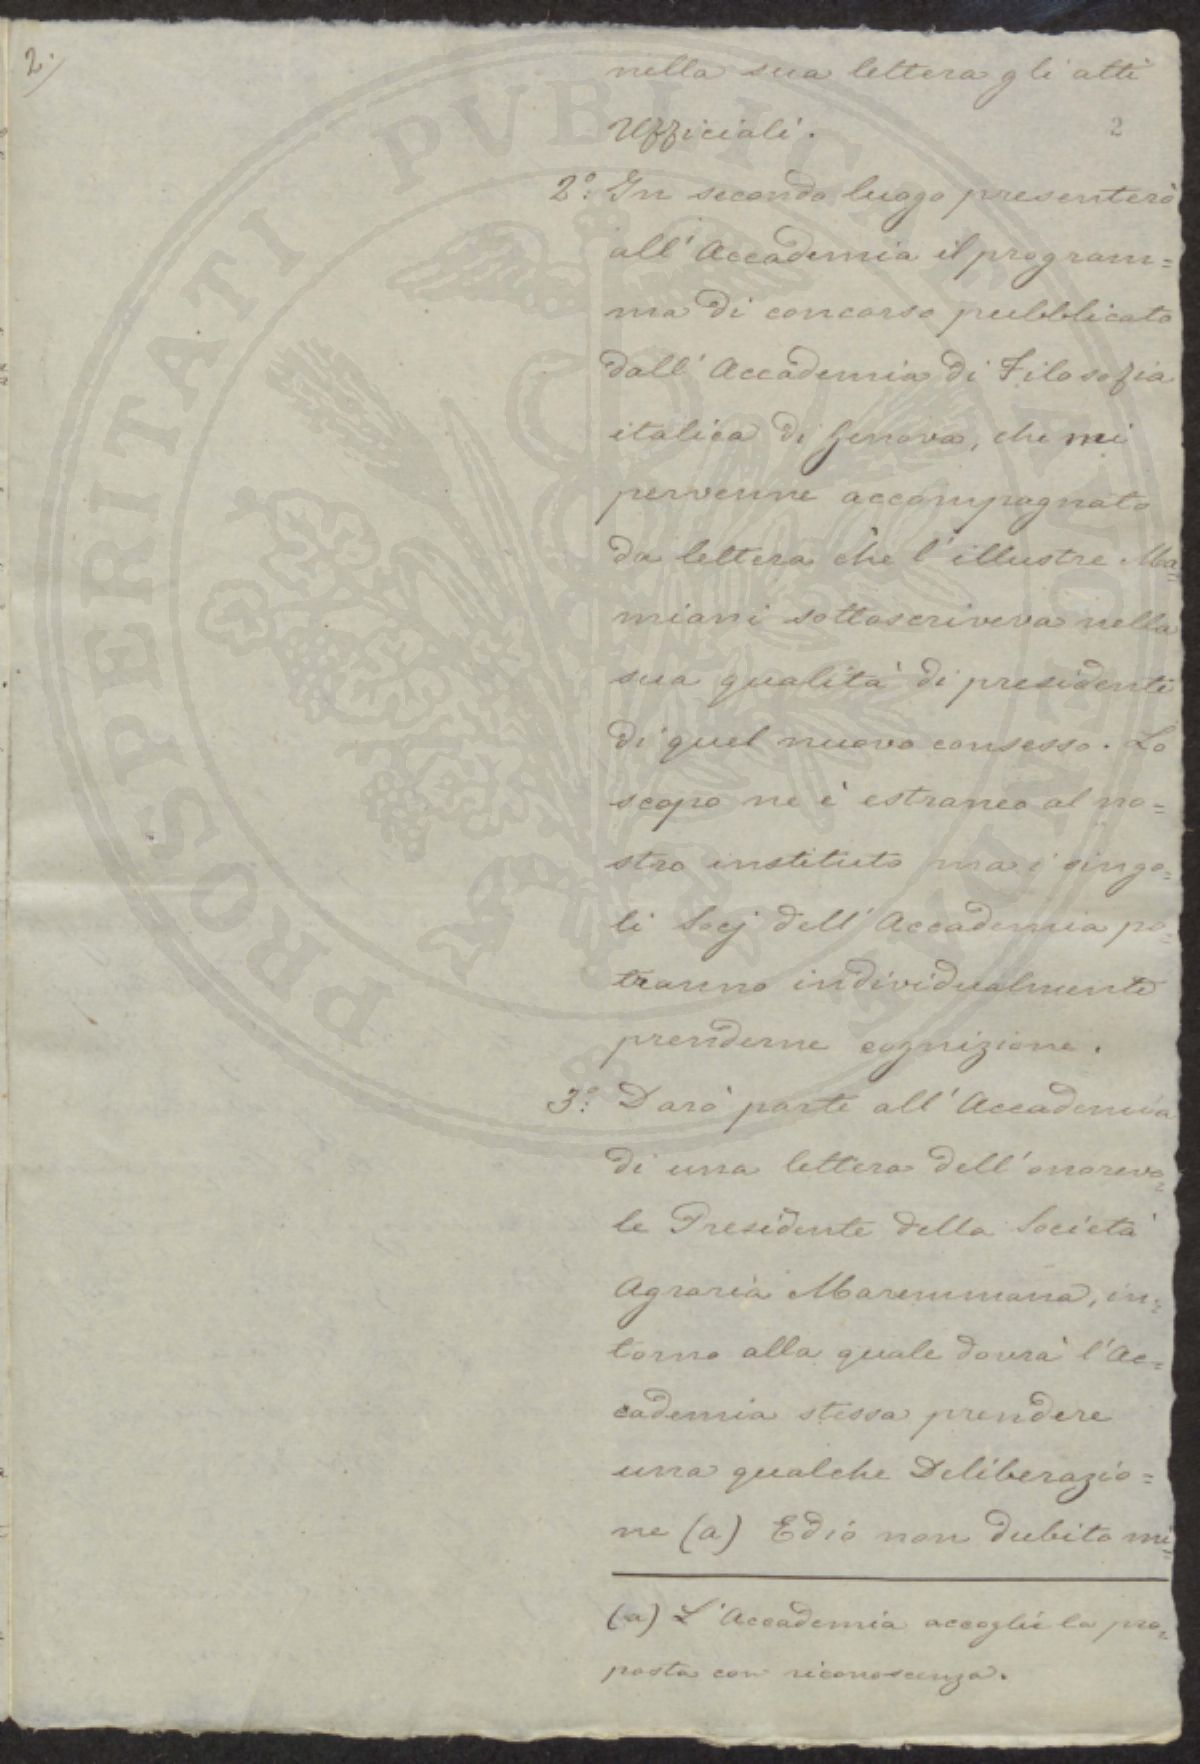 2.
nella sua lettera gli atti
Ufficiali.
2
2.° In secondo luogo presenterò
all'Accademia il program=
ma di concorso pubblicato
dall'Accademia di Filosofia
italica di Genova, che mi
pervenne accompagnato
da lettera che l'illustre Ma=
miani sottoscriveva nella
sua qualità di presidente
di quel nuovo consesso. Lo
scopo ne è estraneo al no=
stro instituto ma i singo=
li Socj dell'Accademia po=
tranno individualmente
prenderne cognizione.
3.° Darò parte all'Accademia
di una lettera dell'onorevo=
le Presidente della Società
Agraria Maremmana, in=
torno alla quale dovrà l'Ac=
cademia stessa prendere
una qualche Deliberazio=
ne (a) Ed io non dubito mi=
(a) L'Accademia accoglie la pro=
posta con riconoscenza.
PROSPERITATI PVBLICAE AVGENDAE